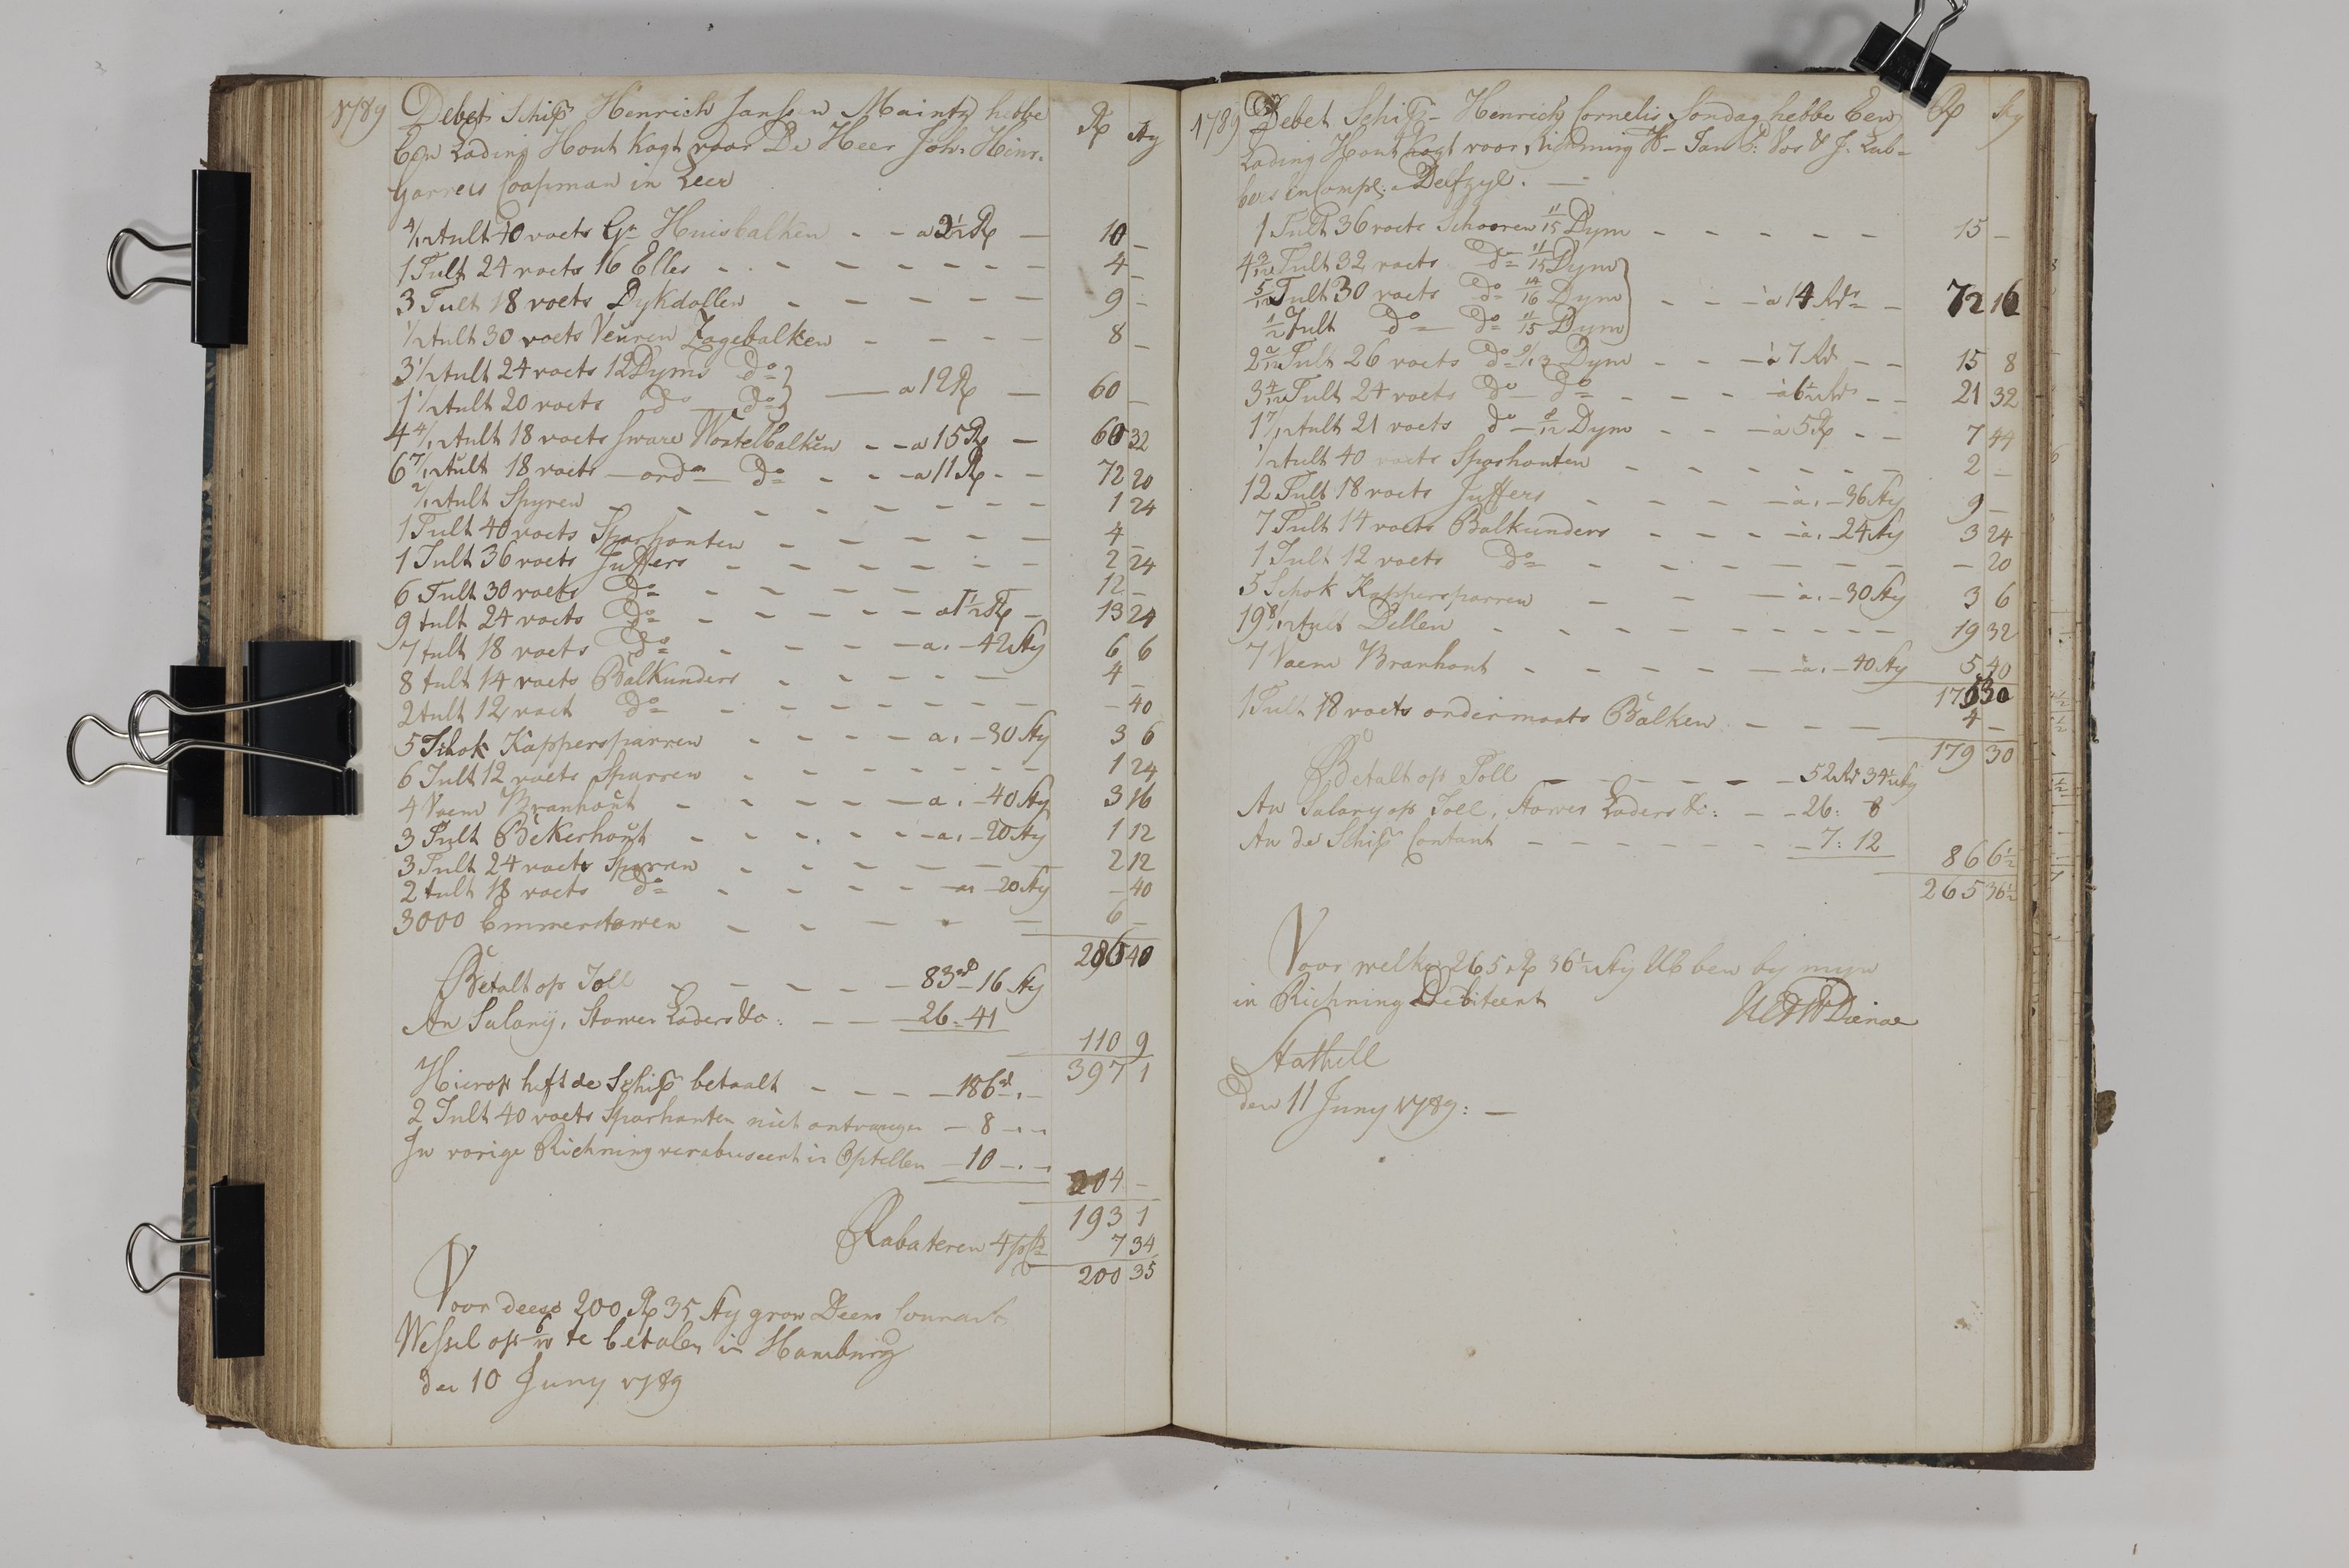 1789 Debet Schip Henrich Janssen Maintz hebbe Rd Sty
Een Lading Hout Kogt voor De Heer Joh: Hinr.
Garrels Coopman in Leer
4/12 tult 40 voets Gr Huisbalken - - a 2½ Rd - 10 -
1 Tult 24 voets 16 Elles - - - - - - - - 4 -
3 Tult 18 voets Dykdollen - - - - - - 9 -
1/12 tult 30 voets Veuren Zagebalken - - - - 8 -
3 1/12 tult 24 voets 12 Dyms do
1 1/12 tult 20 voets do do } - a 12 Rd - 60 -
4 4/12 tult 18 voets sware Wostelbalken - - a 15 Rd - 60 32
6 7/12 tult 18 voets - ord do - - a 11 Rd - - 72 20
2/12 tult Spyren - - - - - - - - 1 24
1 Tult 40 voets Sparhonten - - - - - - 4 -
1 Tult 36 voets Juffers - - - - - - 2 24
6 Tult 30 voets do - - - - - - 12 -
9 tult 24 voets do - - - - - a 1½ Rd - 13 24
7 tult 18 voets do - - - - a. - 42 Sty 6 6
8 tult 14 voets Balkunders - - - - - 4 -
2 tult 12 voet do - - - - - - - - 40
5 Schok Kappersparren - - - - a. - 30 Sty 3 6
6 Tult 12 voets Sparren - - - - - - - 1 24
4 Vaem Branhout - - - - - a. - 40 Sty 3 16
3 Tult Bekerhout - - - - - - a. - 20 Sty 1 12
3 Tult 24 voets Sparren - - - - - - - 2 12
2 tult 18 voets do - - - - - a 20 Sty - 40
3000 Emmerstawen - - - - - - 6 -
286 40
Betalt op Toll - - - - - 83rd - 16 Sty
An Salary, Stawer Laders &c: - - - 26 - 41
110 9
397 1
Hierop heft de Schip betaalt - - - - 186rd. -
2 Tult 40 voets Sparhonten niet ontvangen - 8 - . -
In vorige Richning verabuseert in Optellen - 10 - . -
204 -
193 1
Rabateren 4 p Ct 7 34
200 35
Voor deese 200 Rd 35 Sty grow Deens Courant
Wessel op te betalen in Hamburg
den 10 Juny 1789
1789 Debet Schip - Henrich Cornelis Sondag hebbe Een Rd Sty
Lading Hout Kogt voor Richning H - Jan Vos & J. Lub=
bers en Comp: a Delfzyl. -
1 Tult 36 voets Schooren 11/15 Dym - - - - - - 15 -
4 3/12 Tult 32 voets do 11/15 Dym
5/12 Tult 30 voets do 14/16 Dym } - - - à 14 Rd - 72 16
1/2 Tult do do 11/15 Dym
2 2/12 Tult 26 voets do 9/13 Dym - - - à 7 Rd - - 15 8
3 4/12 Tult 24 voets do do - - - - à 6½ Rd - - 21 32
1 7/12 tult 21 voets do - 8/12 Dym - - - à 5 Rd - - 7 44
1/2 tult 40 voets Sparhonten - - - - - - - 2 -
12 Tult 18 voets Juffers - - - - à. - 36 Sty 9 -
7 Tult 14 voets Balkunders - - - - à. - 24 Sty 3 24
1 Tult 12 voets do - - - - - - - - - 20
5 Schok Kappersparren - - - à. - 30 Sty 3 6
19 8/12 tult Dellen - - - - - - - - - - 19 32
7 Vaem Branhout - - - - - - à. - 40 Sty 5 40
175 30
1 Tult 18 voets ondermaats Balken - - - - 4 -
179 30
Betalt op Toll - - - - - - 52 Rd 34½ Sty
An Salary op Toll, Stawer Laders &c: - - 26: 8
An de Schip Contant - - - - - - - 7: 12
86 6½
265 36½
Voor welke 265 Rd 36½ Sty UE ben by myn
in Richning Debiteert
UEDW Dienar
Stathell
den 11 Juny 1789: -